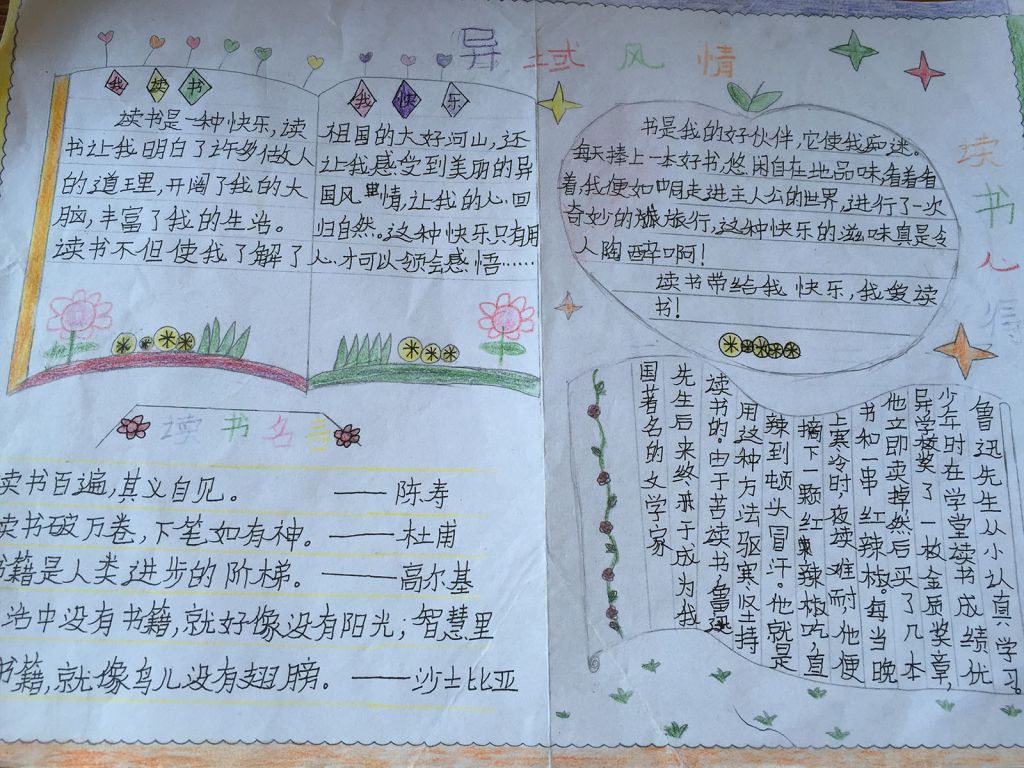 异域风情
我读书
读书是一种快乐,读
书让我明白了许多做人
的道理,开阔了我的大
脑,丰富了我的生活。
读书不但使我了解了
我快乐
祖国的大好河山,还
让我感受到美丽的异
国风情,让我的心回
归自然。这种快乐只有用
心才可以领会感悟……
读书心得
书是我的好伙伴,它使我痴迷。
每天捧上一本好书,悠闲自在地品味,看着看
着,我便如同走进主人公的世界,进行了一次
奇妙的旅行,这种快乐的滋味真是令
人陶醉啊!
读书带给我快乐,我爱读
书!
读书名言
读书百遍,其义自见。——陈寿
读书破万卷,下笔如有神。——杜甫
书籍是人类进步的阶梯。——高尔基
活中没有书籍,就好像没有阳光;智慧里
书籍,就像鸟儿没有翅膀。——沙士比亚
鲁迅先生从小认真学习。
少年时在学堂读书成绩优
异,学校奖了一枚金质奖章,
他立即卖掉,然后买了几本
书和一串红辣椒。每当晚
上寒冷时,夜读难耐他便
摘下一颗红辣椒吃,直
辣到顿头冒汗。他就是
用这种方法驱寒坚持
读书的。由于苦读书,鲁迅
先生后来终于成为我
国著名的文学家